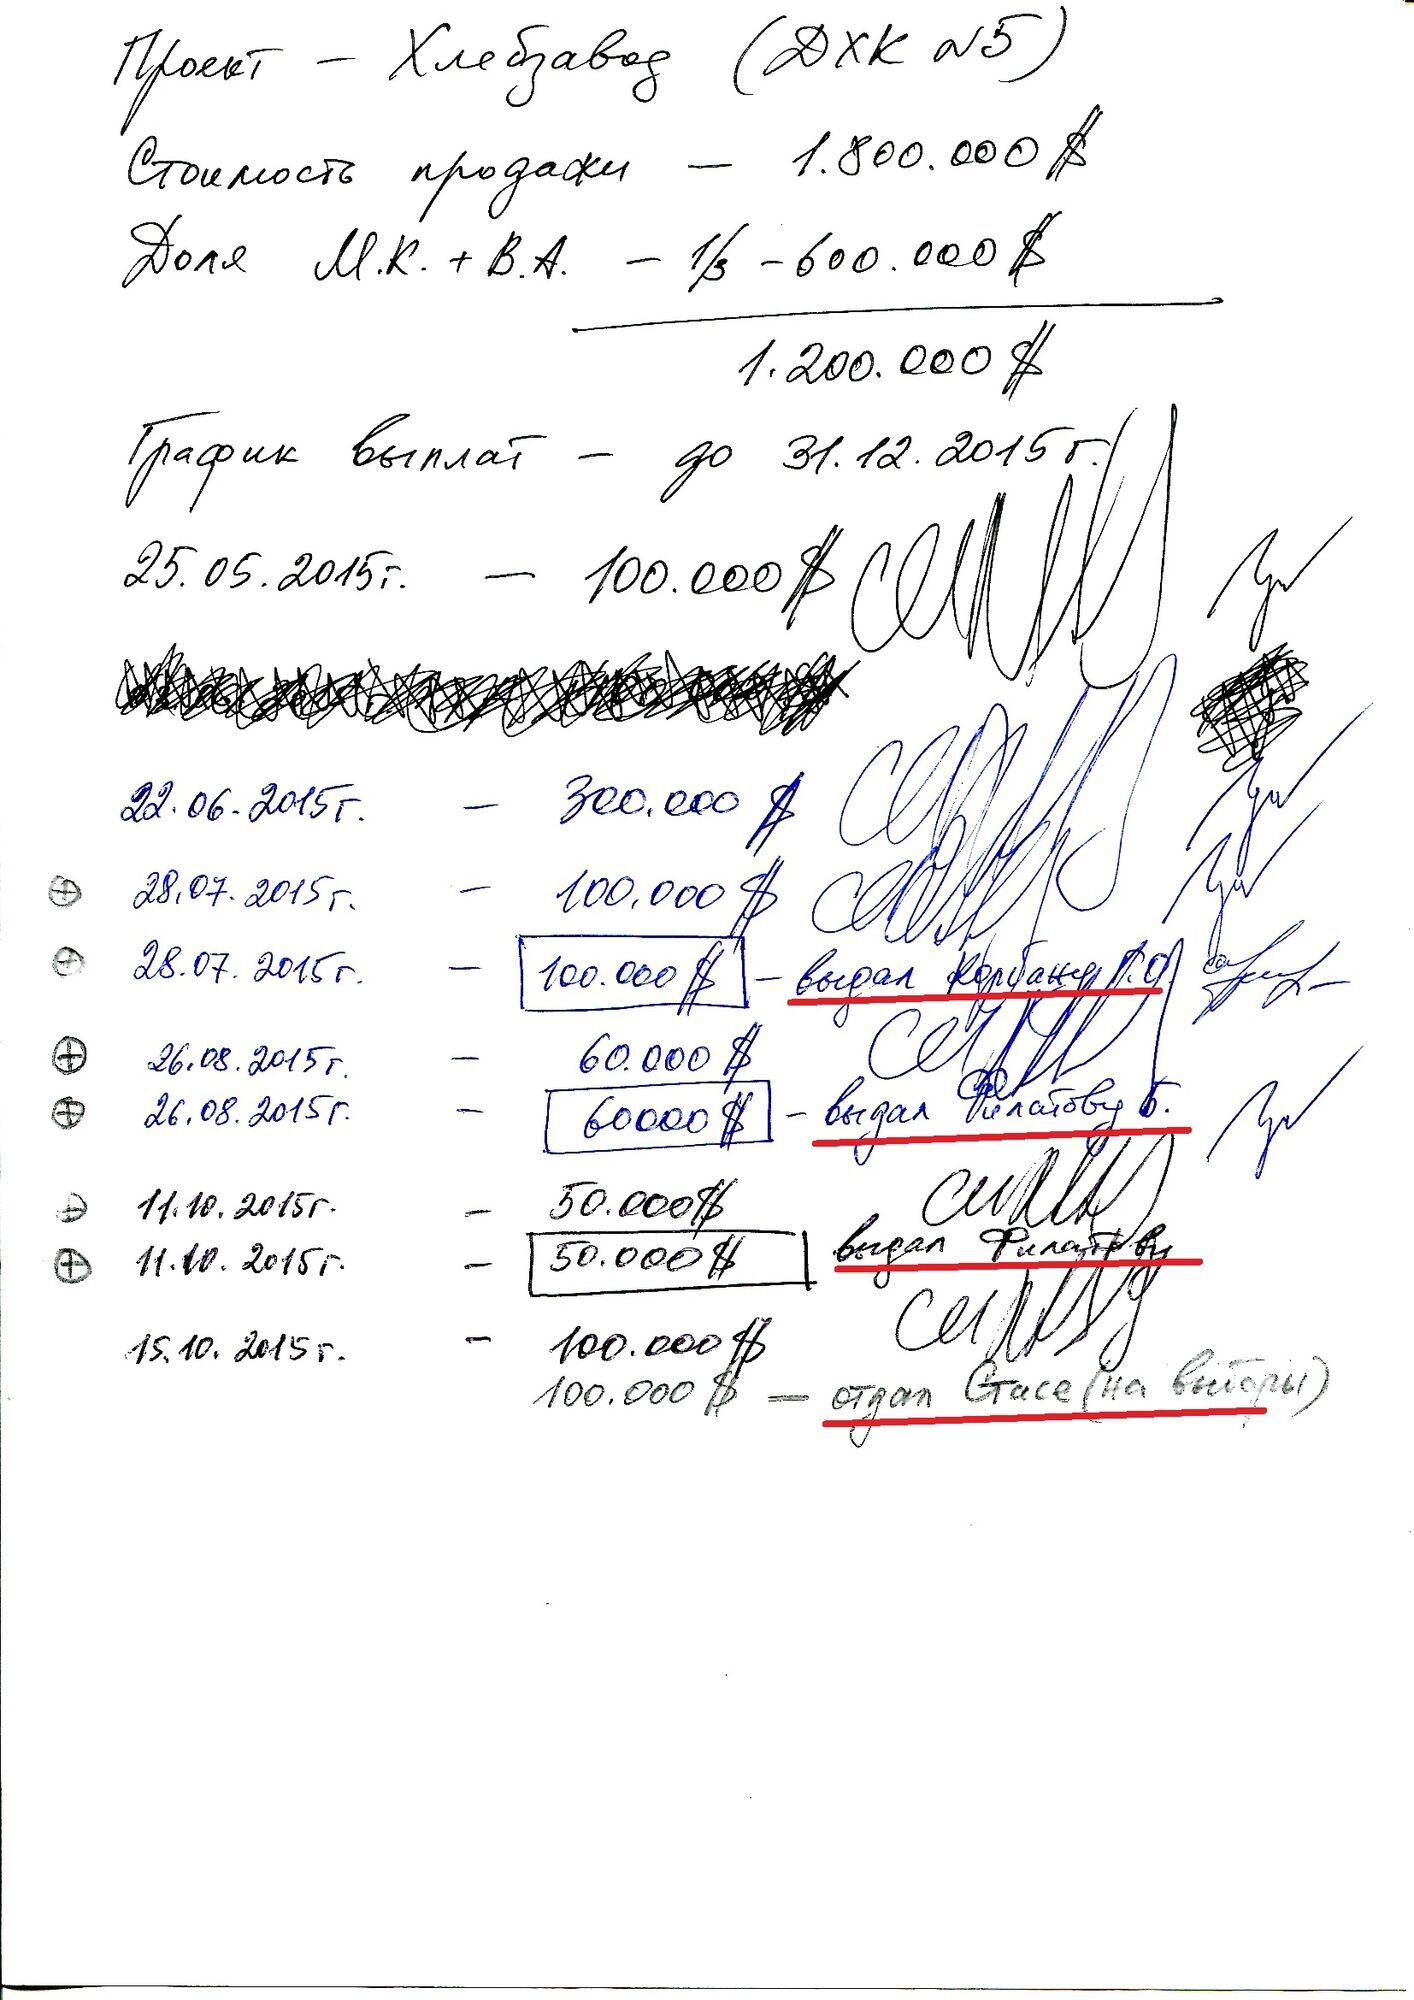 Проект – Хлебзавод (ДХК №5)
Стоимость продажи – 1.800.000 $
Доля М.К. + В.А. – 1/3 – 600.000 $
1.200.000 $
График выплат – до 31.12.2015г.
25.05.2015г. – 100.000 $
22.06.2015г. – 300.000 $
28.07.2015г. – 100.000 $
28.07.2015г. – 100.000 $ – выдал Корбану Г.О.
26.08.2015г. – 60.000 $
26.08.2015г. – 60000 $ – выдал Филатову Б.
11.10.2015г. – 50.000 $
11.10.2015г. – 50.000 $ выдал Филатову
15.10.2015г. – 100.000 $
100.000 $ – отдал Стасе (на выборы)